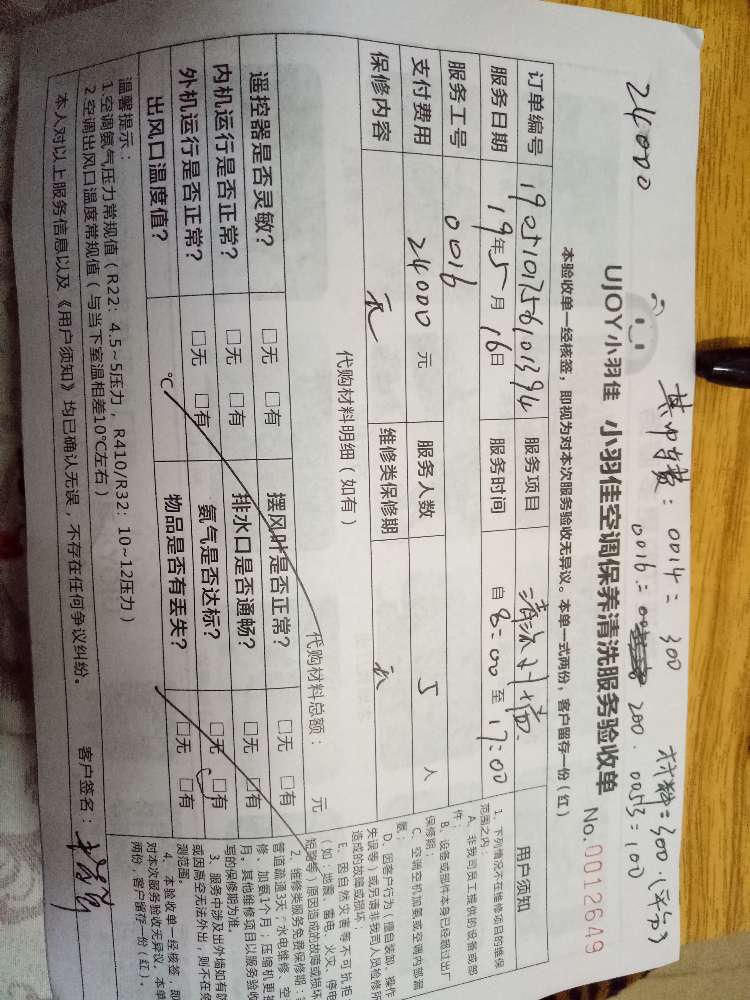 24000
其中车费：0014 = 300 材料=300.(平分)
0016 = 200. 0053 = 100
UJOY小羽佳 小羽佳空调保养清洗服务验收单 No.0012649
本验收单一经核签，即视为对本次服务验收无异议。本单一式两份，客户留存一份（红）
订单编号 服务项目 清洗外墙
服务日期 19年5月16日 服务时间 自 8:00 至 17:00
服务工号 0016
支付费用 24000 元 服务人数 5 人
保修内容 无 维修类保修期 无
代购材料明细（如有）
代购材料总额： 元
遥控器是否灵敏？ □无 □有 摆风叶是否正常？ □无 □有
内机运行是否正常？ □无 □有 排水口是否通畅？ □无 □有
外机运行是否正常？ □无 □有 氨气是否达标？ □无 □有
出风口温度值？ ℃ 物品是否有丢失？ □无 □有
温馨提示：
1.空调氨气压力常规值（R22：4.5~5压力，R410/R32：10~12压力）
2.空调出风口温度常规值（与当下室温相差10℃左右）
本人对以上服务信息以及《用户须知》均已确认无误，不存在任何争议纠纷。 客户签名：
用户须知
1、下列情况不在维修项目的维保
范围之内：
A、非我司员工提供的设备或部
件；
B、设备或部件本身已经超过出厂
保修期；
C、空调空机加氨或空调内部漏
氨；
D、因客户行为（擅自装卸、操作
失误等）或另请非我司人员检修所
造成的故障或损坏；
E、因自然灾害等不可抗拒
（如：地震、雷电、火灾、停电
短路等）原因造成的故障或损坏
2、维修类服务免费保修期：
管道疏通3天；水电维修、空
修、加氨1个月；压缩机更换
月。其他维修项目以服务验收
写的保修期为准。
3、服务中涉及出外墙如有防
或因高空无法外出，则不在
测范围。
4、本验收单一经核签，即
对本次服务验收无异议。本单
两份，客户留存一份（红）。